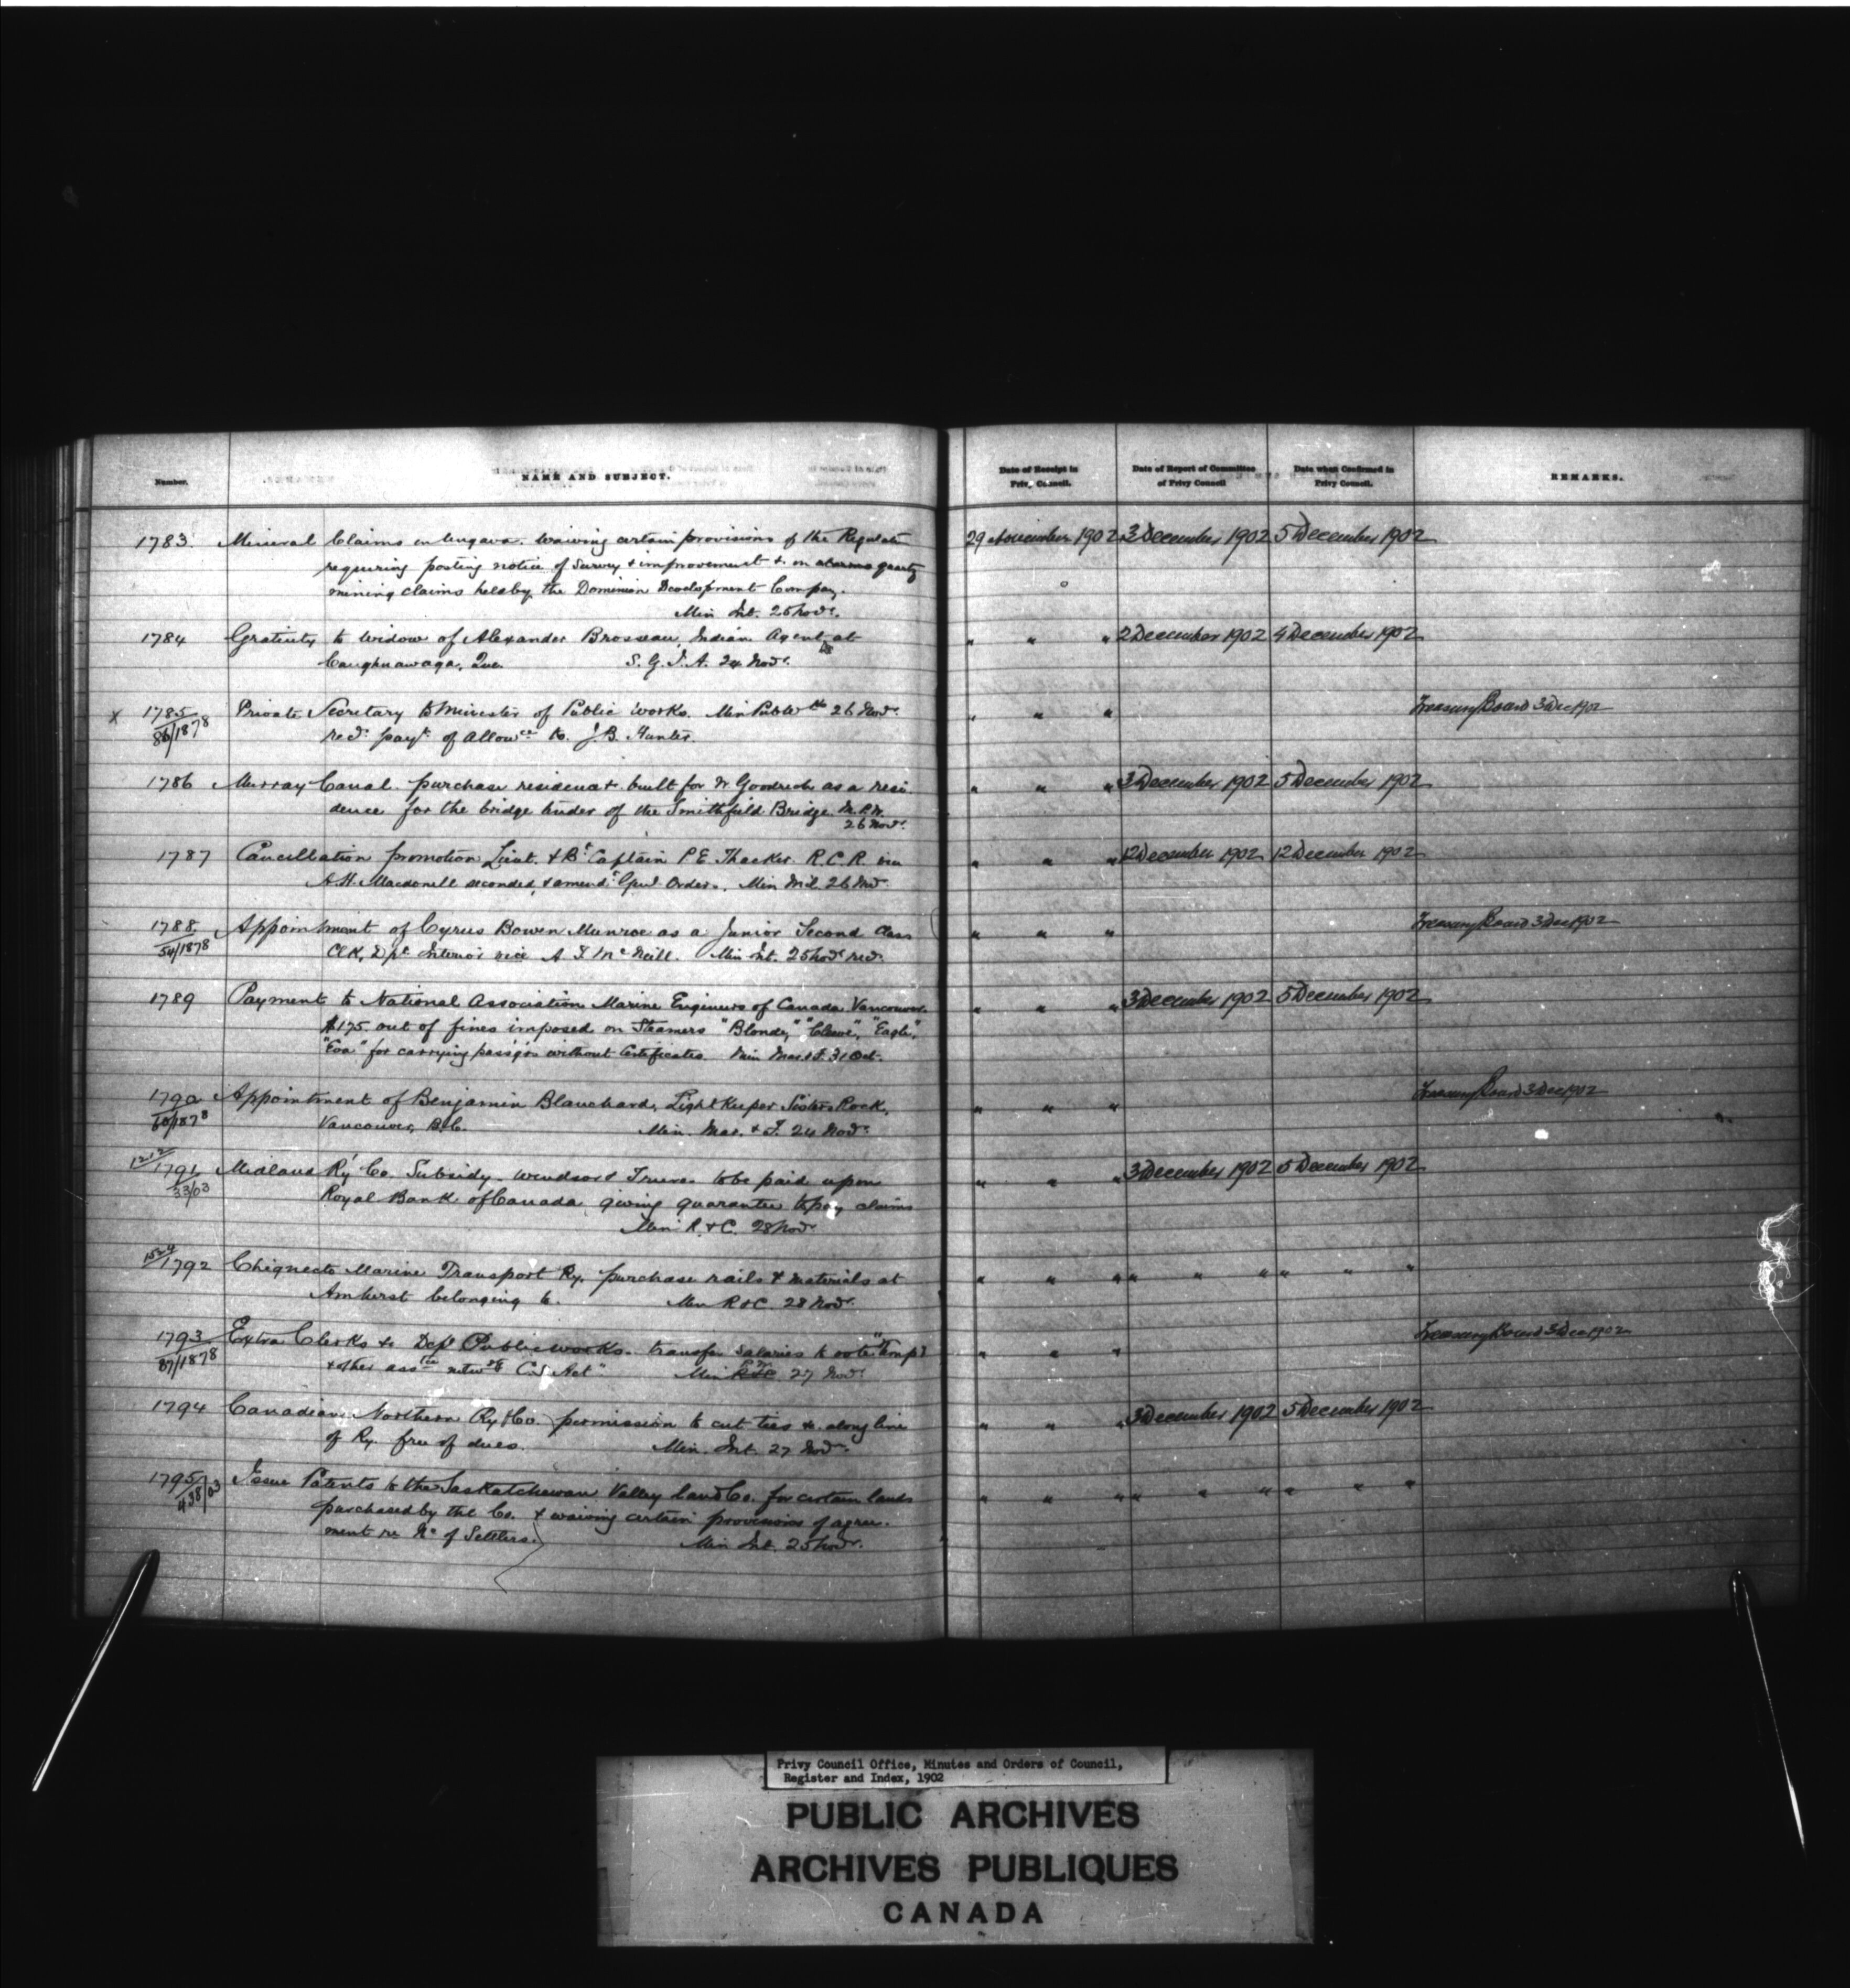 Number.
NAME AND SUBJECT.
Date of Receipt in Privy Council.
Date of Report of Committee of Privy Council
Date when Confirmed in Privy Council.
REMARKS.
1783. Mineral Claims in Ungava. waiving certain provisions of the Regulate 29 November 1902 3 December 1902 5 December 1902
requiring posting notice of Survey & improvement &c on quartz
mining claims held by the Dominion Development Company.
Min Int. 25 Novr.
1784 Gratuity to widow of Alexander Brosseau, Indian Agent at " " " 2 December 1902 4 December 1902
Caughnawaga, Que. S. G. I. A. 24 Novr.
X 1785 Private Secretary to Minister of Public Works. Min Pub Wks 26 Novr. " " " Treasury Board 3 Dec 1902
86/1878 recd. payt. of allowce to J. B. Hunter.
1786 Murray Canal. purchase residence built for W Goodrich as a resi " " " 3 December 1902 5 December 1902
dence for the bridge tender of the Smithfield Bridge
26 Novr.
1787 Cancellation promotion Lieut. & Bt. Captain P. E. Thacker R. C. R. vice " " " 12 December 1902 12 December 1902
A. H. Macdonell seconded, & amendt. Genl. Orders. Min Mil. 26 Nov.
1788 Appointment of Cyrus Bowen Munroe as a Junior Second Class " " " Treasury Board 3 Dec 1902
54/1878 Clk, Dpt Interior vice A. F. McNeill. Min Int. 25 Novr recd.
1789 Payment to National Association Marine Engineers of Canada Vancouver " " " 3 December 1902 5 December 1902
$175 out of fines imposed on Steamers "Blonde," "Cleeve", "Eagle",
"Eva" for carrying passgrs without Certificates. Min Mar & F. 31 Oct.
1790 Appointment of Benjamin Blanchard, Light Keeper Sisters Rock, " " " Treasury Board 3 Dec 1902
60/1878 Vancouver, B.C. Min. Mar. & F. 24 Novr.
1212 1791 Midland Ry Co. Subsidy. Windsor & Truro to be paid upon " " " 3 December 1902 5 December 1902
33/03 Royal Bank of Canada giving guarantee to pay claims
Min R. & C. 28 Novr
1524 1792 Chignecto Marine Transport Ry. purchase rails & materials at " " " " " " " " "
Amherst belonging to. Min R & C. 28 Novr.
1793 Extra Clerks &c Dept Public Works. transfer salaries to vote "Temp " " " Treasury Board 3 Dec 1902
87/1878 & other assce C. S. Act" Min 27 Novr
1794 Canadian Northern Ry Co. permission to cut ties &c. along line " " " 3 December 1902 5 December 1902
of Ry. free of dues. Min. Int. 27 Novr.
1795 Issue Patents to the Saskatchewan Valley Land Co. for certain lands " " " " " " " " "
438/03 purchased by the Co. & waiving certain provisions of agree-
ment re No. of Settlers. Min Int. 25 Novr.
Privy Council Office, Minutes and Orders of Council,
Register and Index, 1902
PUBLIC ARCHIVES
ARCHIVES PUBLIQUES
CANADA